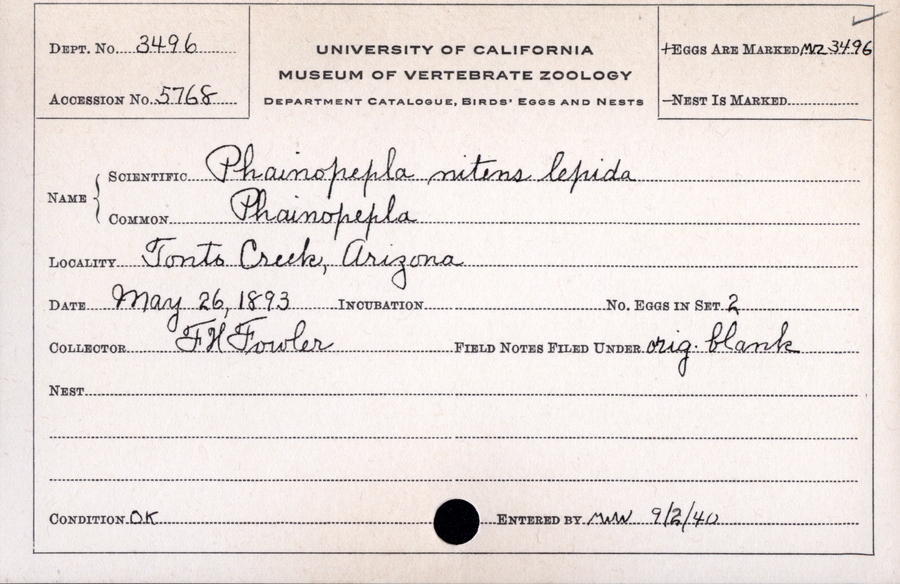 Dept. No. 3496
Accession No. 5768
University of California
Museum of Vertebrate Zoology
Department Catalogue, Birds' Eggs and Nests
+Eggs Are Marked MVZ 3496
—Nest Is Marked
Name
Scientific Phainopepla nitens lepida
Common Phainopepla
Locality Tonto Creek, Arizona
Date May 26, 1893 Incubation No. Eggs in Set 2
Collector F H Fowler Field Notes Filed Under orig. blank
Nest
Condition OK Entered by 9/2/40